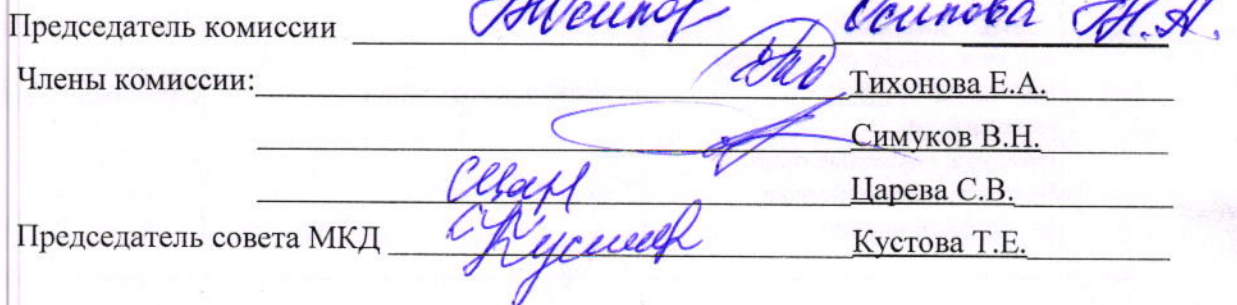 Председатель комиссии Осипова Н.А.
Члены комиссии: Тихонова Е.А.
Симуков В.Н.
Царева С.В.
Председатель совета МКД Кустова Т.Е.